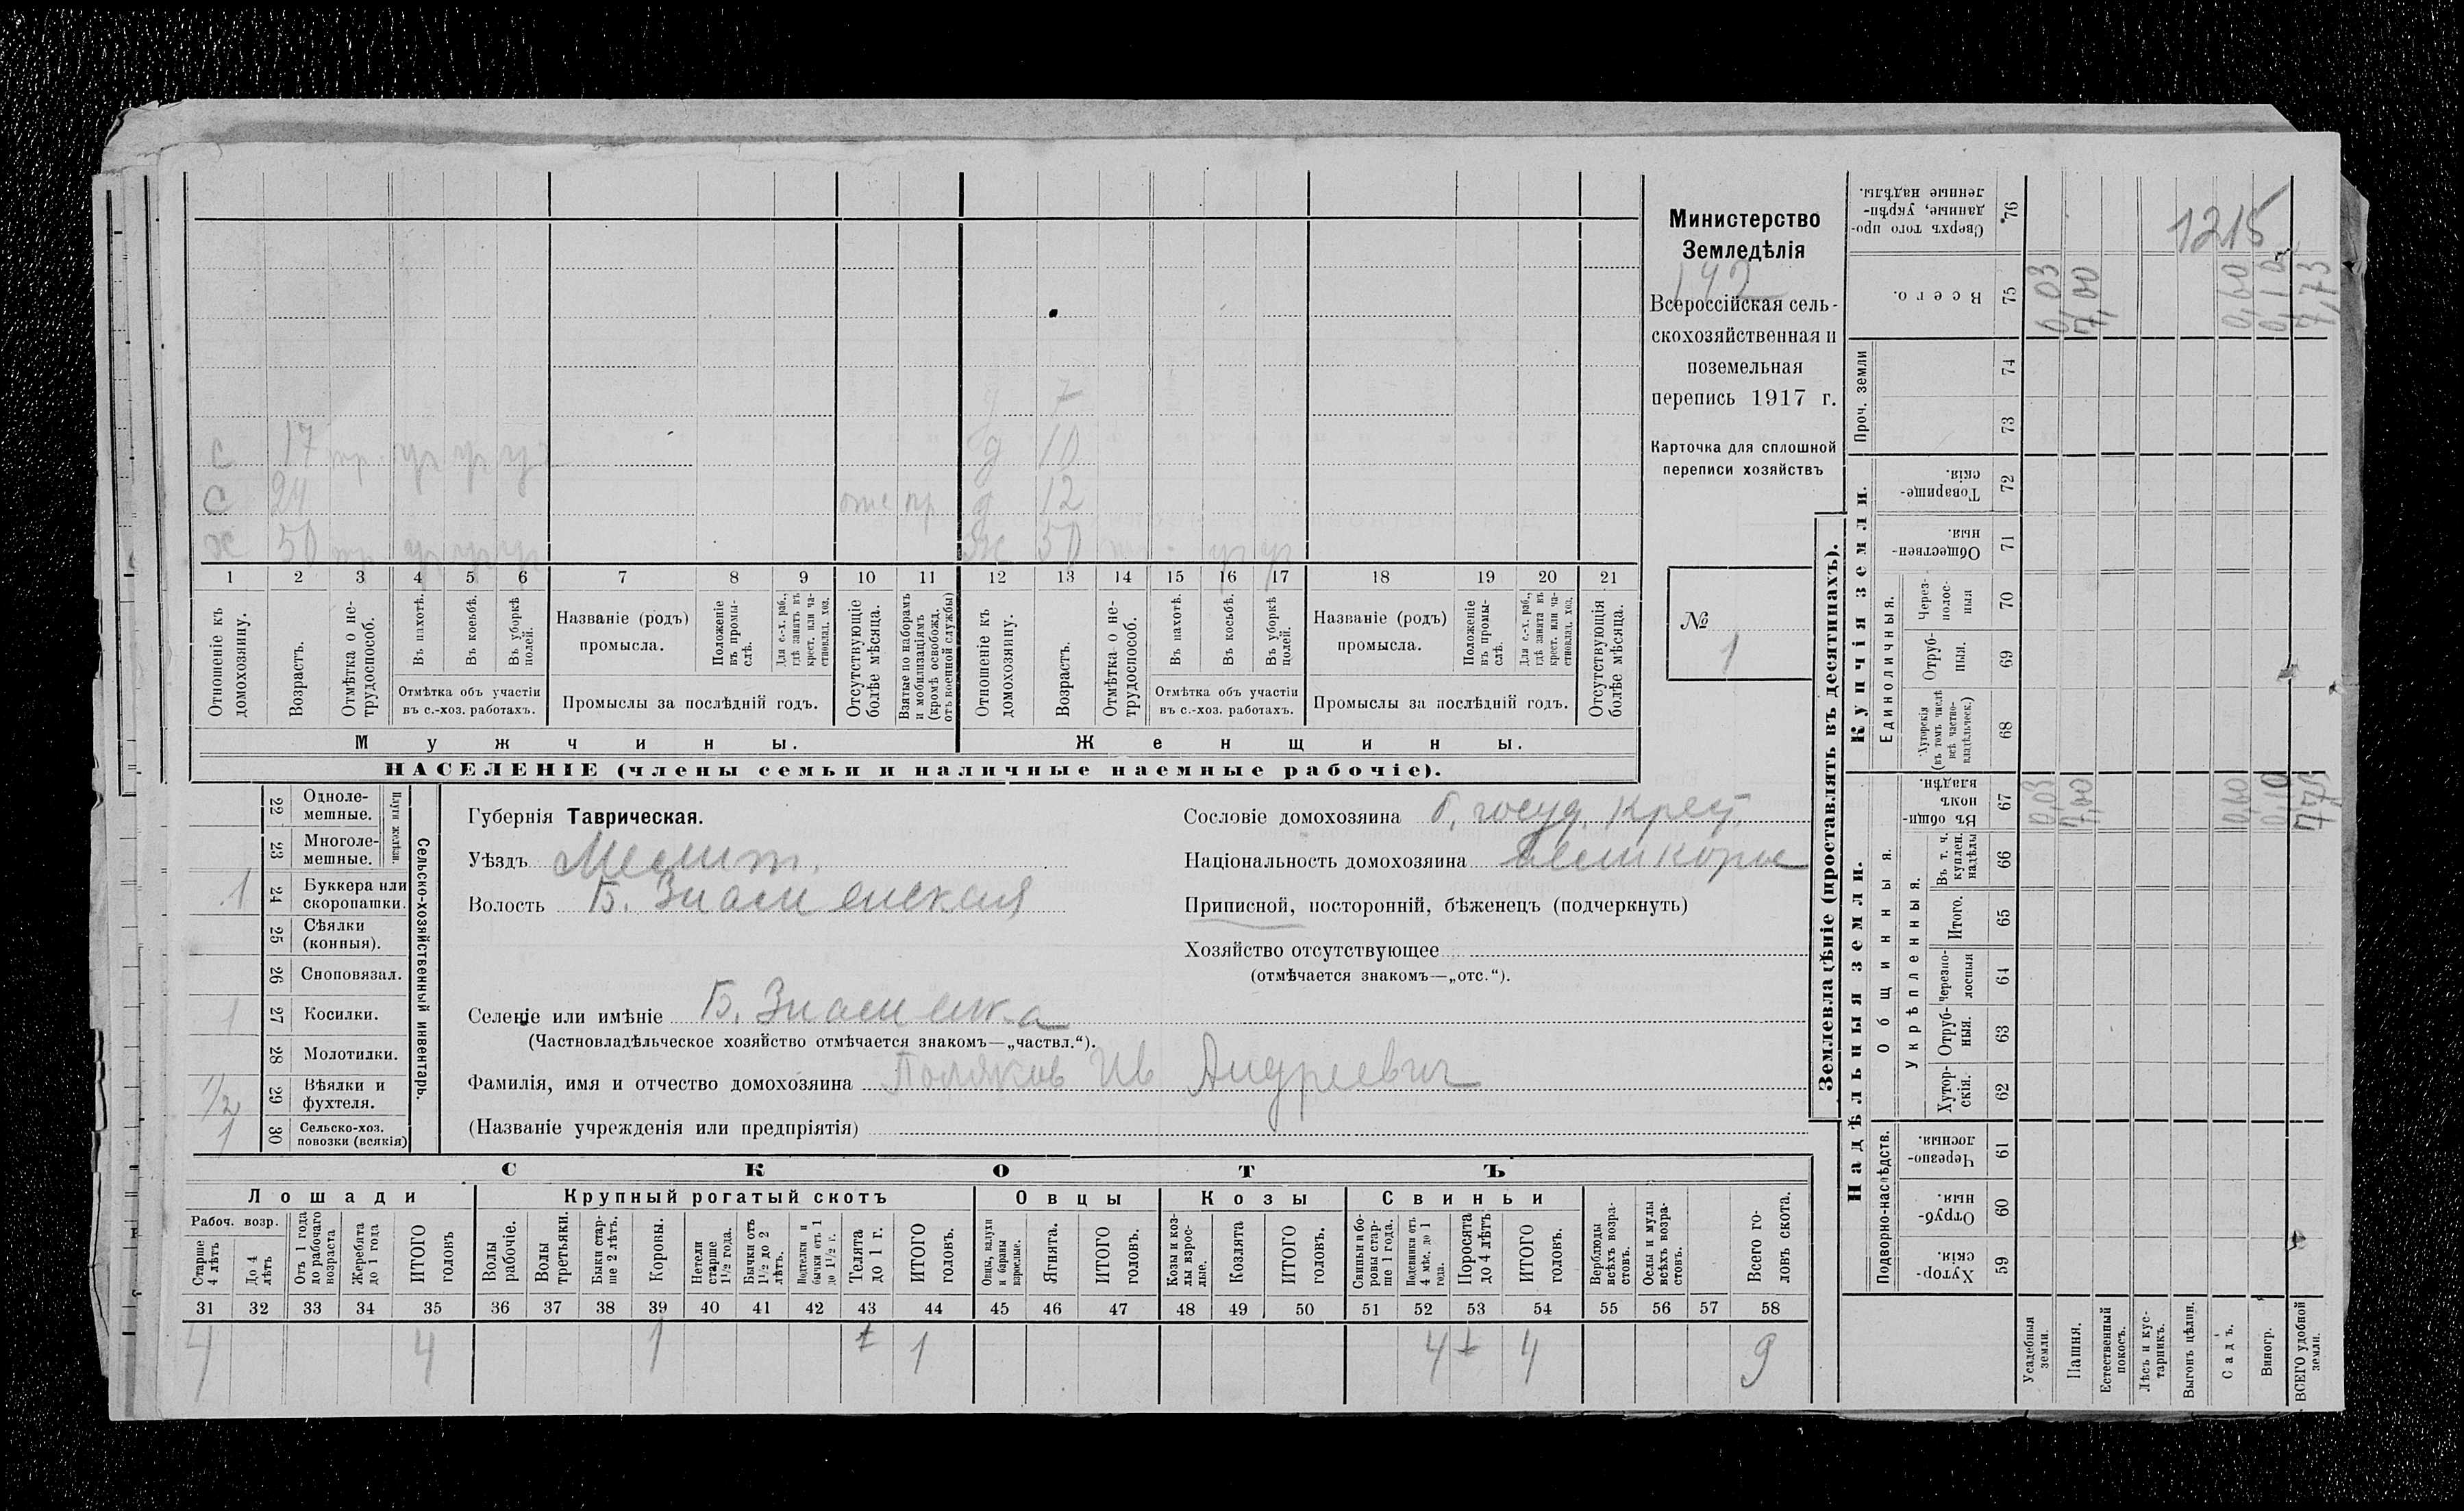 Министерство
Земледѣлія
142
Всероссійская сель-
скохозяйственная и
поземельная
перепись 1917 г.
Карточка для сплошной
переписи хозяйствъ
№
1
1215
д 7
с 17 нр. уч уч уч д 10
с 24 отс пр д 12
х 50 нр уч уч уч ж 50 уч уч
1 2 3 4 5 6 7 8 9 10 11 12 13 14 15 16 17 18 19 20 21
Отношеніе къ домохозяину.
Возрастъ.
Отмѣтка о не-трудоспособ.
Въ пахотѣ.
Въ косьбѣ.
Въ уборкѣ полей.
Отмѣтка объ участіи
въ с.-хоз. работахъ.
Названіе (родъ)
промысла.
Положеніе въ промы-слѣ.
Для с.-х. раб., гдѣ занятъ въ крест. или ча-стновлад. хоз.
Промыслы за послѣдній годъ.
Отсутствующіе болѣе мѣсяца.
Взятые по наборамъ и мобилизаціямъ (кромѣ освобожд. отъ военной службы)
Отношеніе къ домохозяину.
Возрастъ.
Отмѣтка о не-трудоспособ.
Въ пахотѣ.
Въ косьбѣ.
Въ уборкѣ полей.
Отмѣтка объ участіи
въ с.-хоз. работахъ.
Названіе (родъ)
промысла.
Положеніе въ промы-слѣ.
Для с.-х. раб., гдѣ занята въ крест. или ча-стновлад. хоз.
Промыслы за послѣдній годъ.
Отсутствующія болѣе мѣсяца.
Мужчины. Женщины.
НАСЕЛЕНІЕ (члены семьи и наличные наемные рабочіе).
Сельско-хозяйственный инвентарь.
Плуги желѣзн.
22 Одноле-мешные.
23 Многоле-мешные.
1 24 Буккера или скоропашки.
25 Сѣялки (конныя).
26 Сноповязал.
1 27 Косилки.
28 Молотилки.
1/2 29 Вѣялки и фухтеля.
1 30 Сельско-хоз. повозки (всякія)
Губернія Таврическая.
Уѣздъ Мелит.
Волость Б. Знаменская
Сословіе домохозяина б. госуд. крест.
Національность домохозяина великорос
Приписной, посторонній, бѣженецъ (подчеркнуть)
Хозяйство отсутствующее
(отмѣчается знакомъ—„отс.“).
Селеніе или имѣніе Б. Знаменка
(Частновладѣльческое хозяйство отмѣчается знакомъ—„частвл.“).
Фамилія, имя и отчество домохозяина Поляков Ив Андреевич
(Названіе учрежденія или предпріятія)
СКОТЪ
Лошади Крупный рогатый скотъ Овцы Козы Свиньи
Рабоч. возр.
Старше 4 лѣтъ
До 4 лѣтъ
Отъ 1 года до рабочаго возраста
Жеребята до 1 года
ИТОГО головъ
Волы рабочіе.
Волы третьяки.
Быки стар-ше 2 лѣтъ.
Коровы.
Нетели старше 1½ года.
Бычки отъ 1½ до 2 лѣтъ.
Подтелки и бычки отъ 1 до 1½ г.
Телята до 1 г.
ИТОГО головъ.
Овцы, валухи и бараны взрослые.
Ягнята.
ИТОГО головъ.
Козы и коз-лы взрос-лые.
Козлята
ИТОГО головъ.
Свиньи и бо-ровы стар-ше 1 года.
Подсвинки отъ 4 мѣс. до 1 года.
Поросята до 4 лѣтъ
ИТОГО головъ.
Верблюды всѣхъ возра-стовъ.
Ослы и мулы всѣхъ возра-стовъ.
Всего го-ловъ скота.
31 32 33 34 35 36 37 38 39 40 41 42 43 44 45 46 47 48 49 50 51 52 53 54 55 56 57 58
4 4 1 1 4 4 9
Землевладѣніе (проставлять въ десятинахъ).
Надѣльныя земли. Купчія земли.
Подворно-наслѣдств.
Общинныя.
Укрѣпленныя.
Единоличныя.
Проч. земли
Хутор-скія. 59
Отруб-ныя. 60
Черезпо-лосныя. 61
Хутор-скія. 62
Отруб-ныя. 63
Черезпо-лосныя 64
Итого. 65
Въ т. ч. куплен. надѣлы 66
Въ общи-номъ владѣн. 67
Хуторскія (въ томъ числѣ всѣ частно-владѣльческ.) 68
Отруб-ныя. 69
Через-полос-ныя 70
Обществен-ныя. 71
Товарище-скія. 72
73
74
Всего. 75
Сверхъ того про-данные, укрѣп-ленные надѣлы. 76
Усадебныя земли. 0,03 0,03
Пашня. 7,00 7,00
Естественный покосъ.
Лѣсъ и кус-тарникъ.
Выгонъ цѣлин.
Садъ. 0,60 0,60
Виногр. 0,10 0,10
ВСЕГО удобной земли. 7,73 7,73